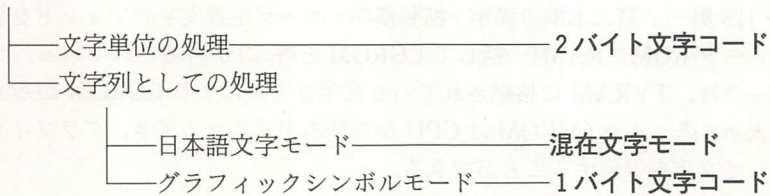 文字単位の処理 2バイト文字コード
文字列としての処理
日本語文字モード 混在文字モード
グラフィックシンボルモード 1バイト文字コード